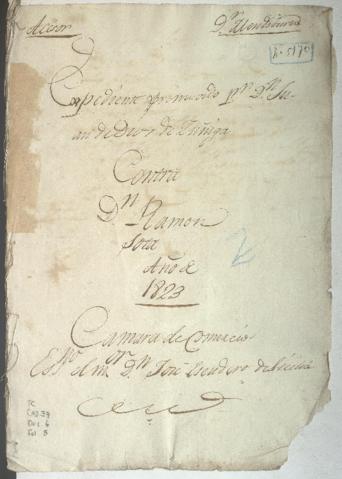 Acsor
Dr Mendiburu
Expediente promovido pr. Dn Ju-
an de Dios de Zuñiga
Contra
Dn Ramon
Sota
Año de
1823
2
Camara de Comercio
Essno el mor. Dn José Escudero de Sicilia
TC
CAJ.
Doc. 6
Fol 8